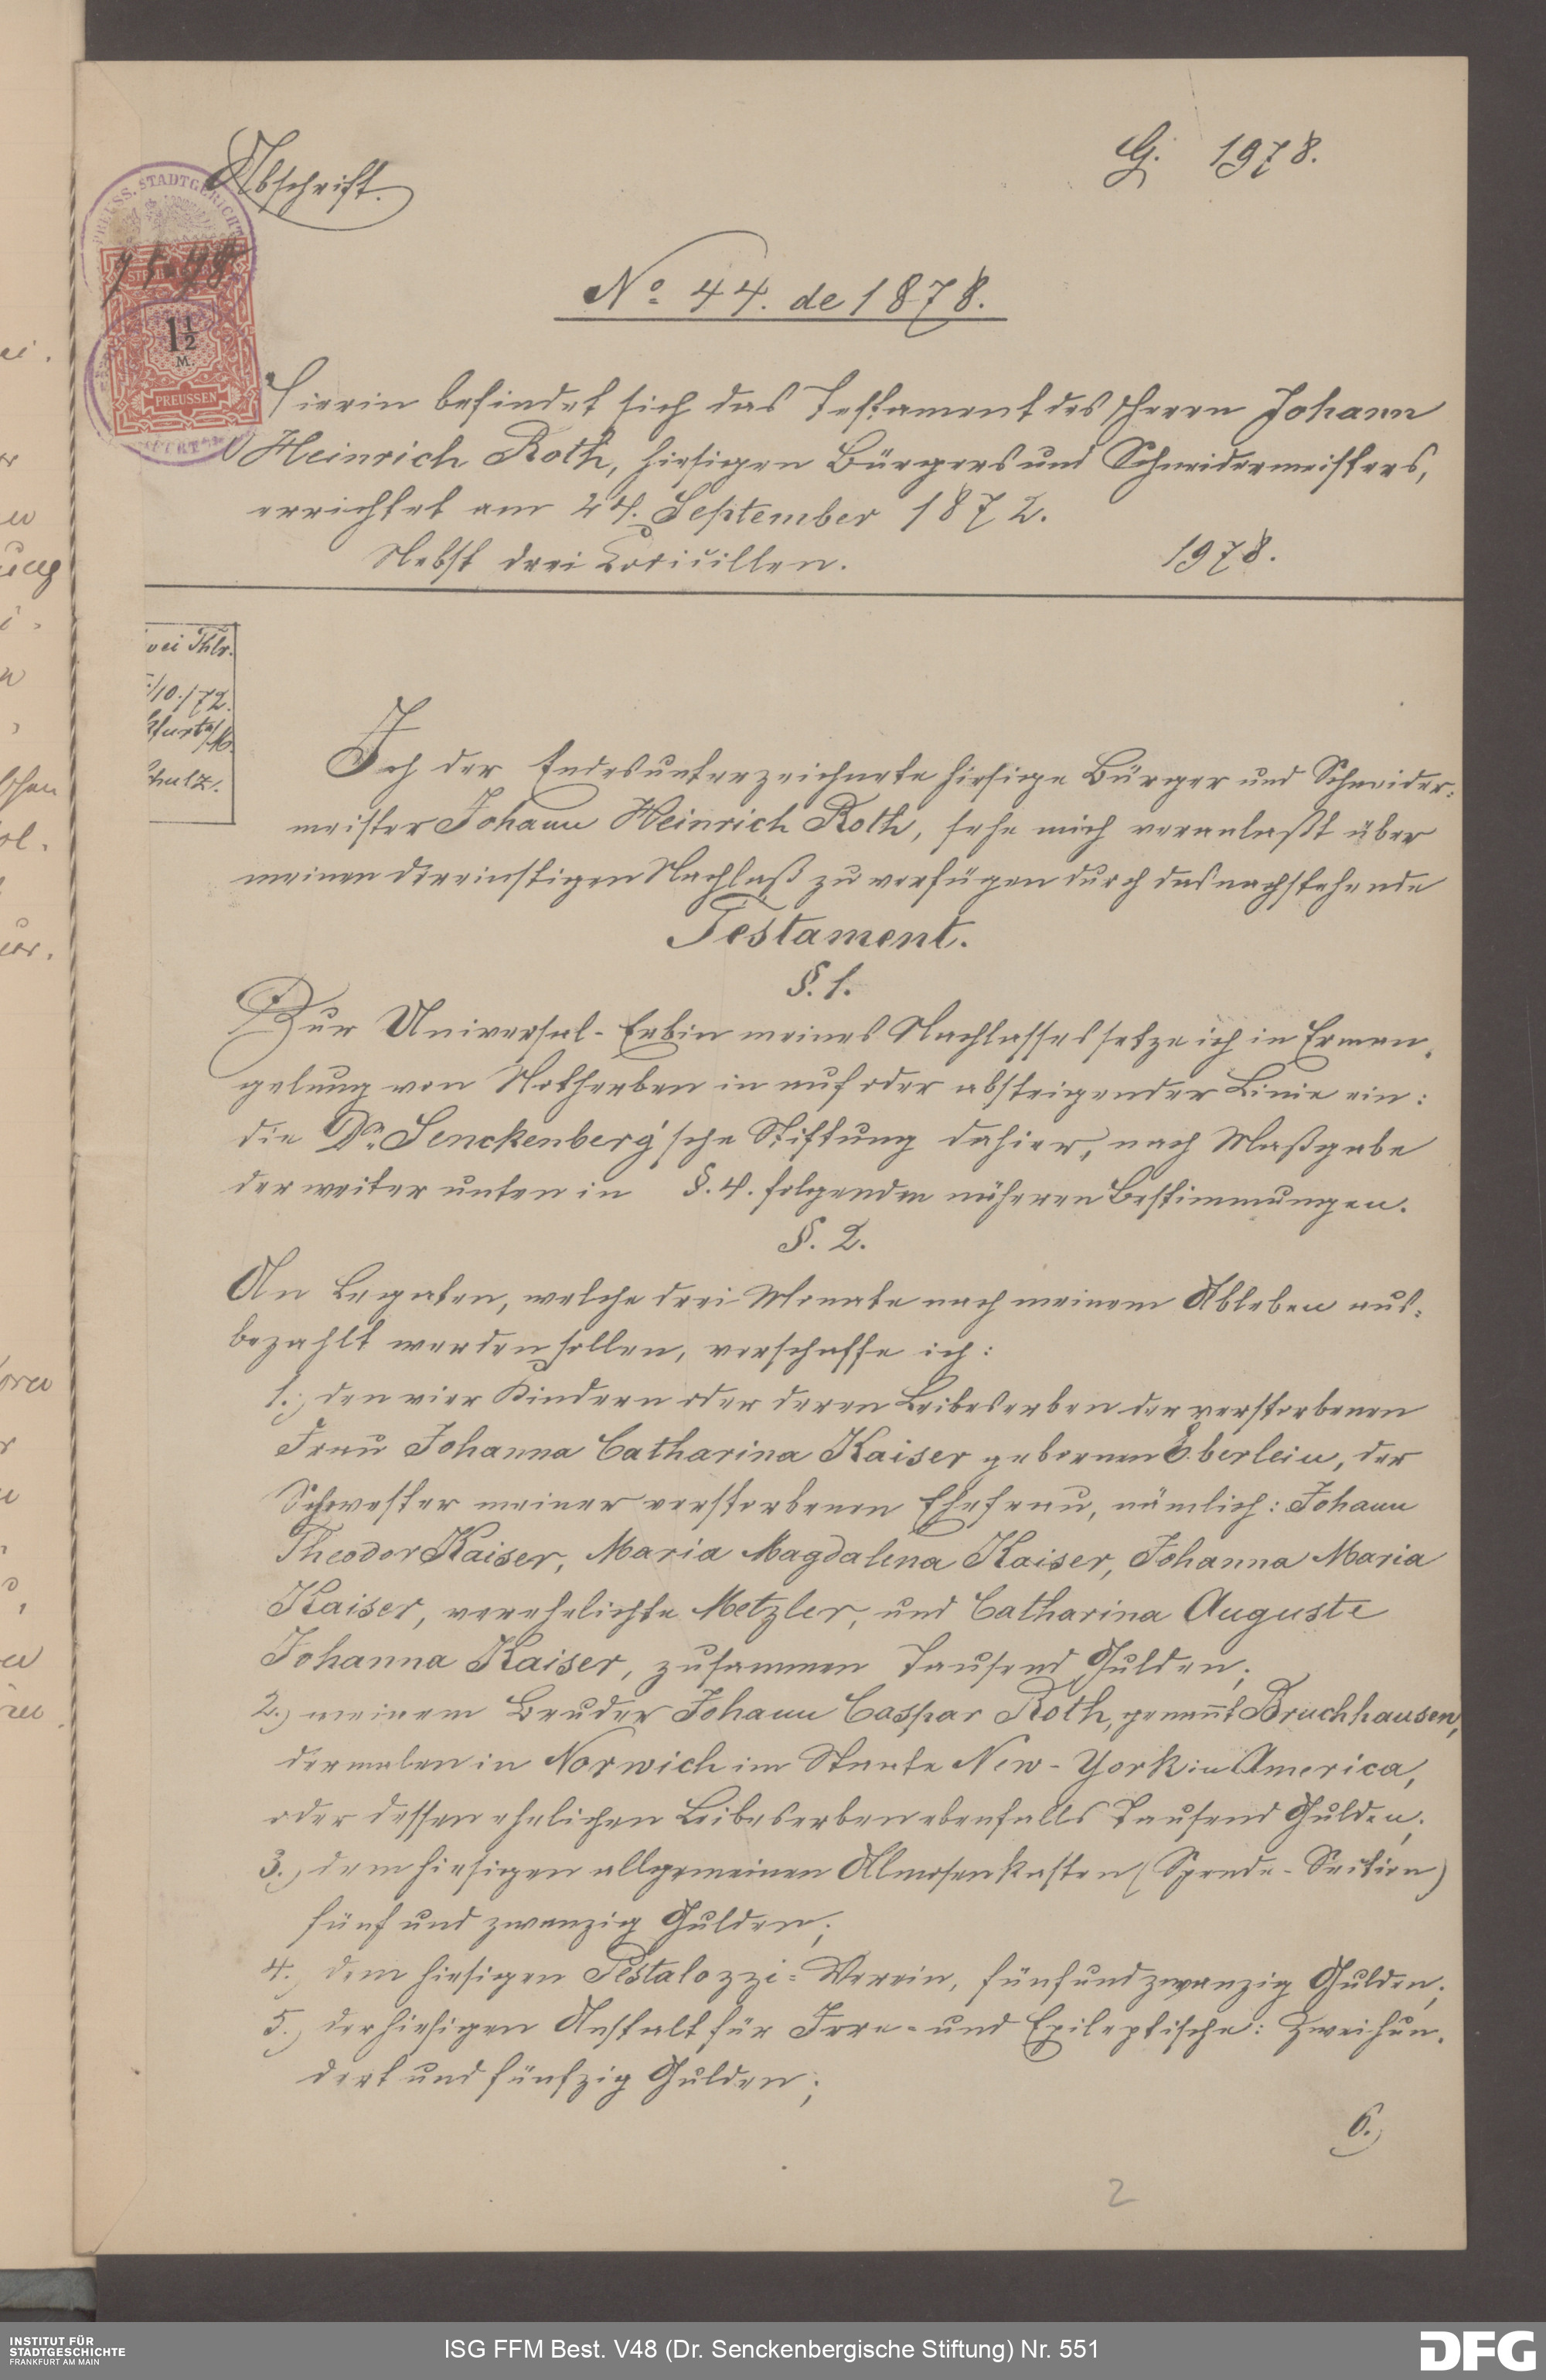 Abschrift.
G. 1978.
PREUSS. STADTGERICHT
1 1/2
M.
PREUSSEN
No. 44. de 1878.
Hierin befindet sich das Testament des Herrn Johann
Heinrich Roth, hiesigen Bürgers und Schneidermeisters,
errichtet am 24. September 1872.
Nebst drei Codicillen. 1978.
/10./72.
Ich der Endesunterzeichnete hiesige Bürger und Schneider=
meister Johann Heinrich Roth, sehe mich veranlaßt über
meinen dereinstigen Nachlaß zu verfügen durch das nachstehende
Testament.
§. 1.
Zur Universal-Erbin meines Nachlasses setze ich in Erman-
gelung von Notherben in auf oder absteigender Linie ein:
die Dr. Senckenberg'sche Stiftung dahier, nach Maßgabe
der weiter unten in §. 4. folgenden näheren Bestimmungen.
§. 2.
An Legaten, welche drei Monate nach meinem Ableben aus=
bezahlt werden sollen, verschaffe ich:
1.) den vier Kindern oder deren Leibeserben der verstorbenen
Frau Johanna Catharina Kaiser gebornen Eberlein, der
Schwester meiner verstorbenen Ehefrau, nämlich: Johann
Theodor Kaiser, Maria Magdalena Kaiser, Johanna Maria
Kaiser, verehelichte Metzler, und Catharina Auguste
Johanna Kaiser, zusammen Tausend Gulden;
2.) meinem Bruder Johann Caspar Roth, genannt Bruchhausen,
dermalen in Norwich im Staate New-York in America,
oder dessen ehelichen Leibeserben ebenfalls Tausend Gulden;
3.) dem hiesigen allgemeinen Almosenkasten (Spende-Section)
fünf und zwanzig Gulden;
4.) dem hiesigen Pestalozzi=Verein, fünf und zwanzig Gulden;
5.) der hiesigen Anstalt für Irre- und Epileptische: Zweihun-
dert und fünfzig Gulden;
6.)
2
INSTITUT FÜR
STADTGESCHICHTE
FRANKFURT AM MAIN
ISG FFM Best. V48 (Dr. Senckenbergische Stiftung) Nr. 551
DFG